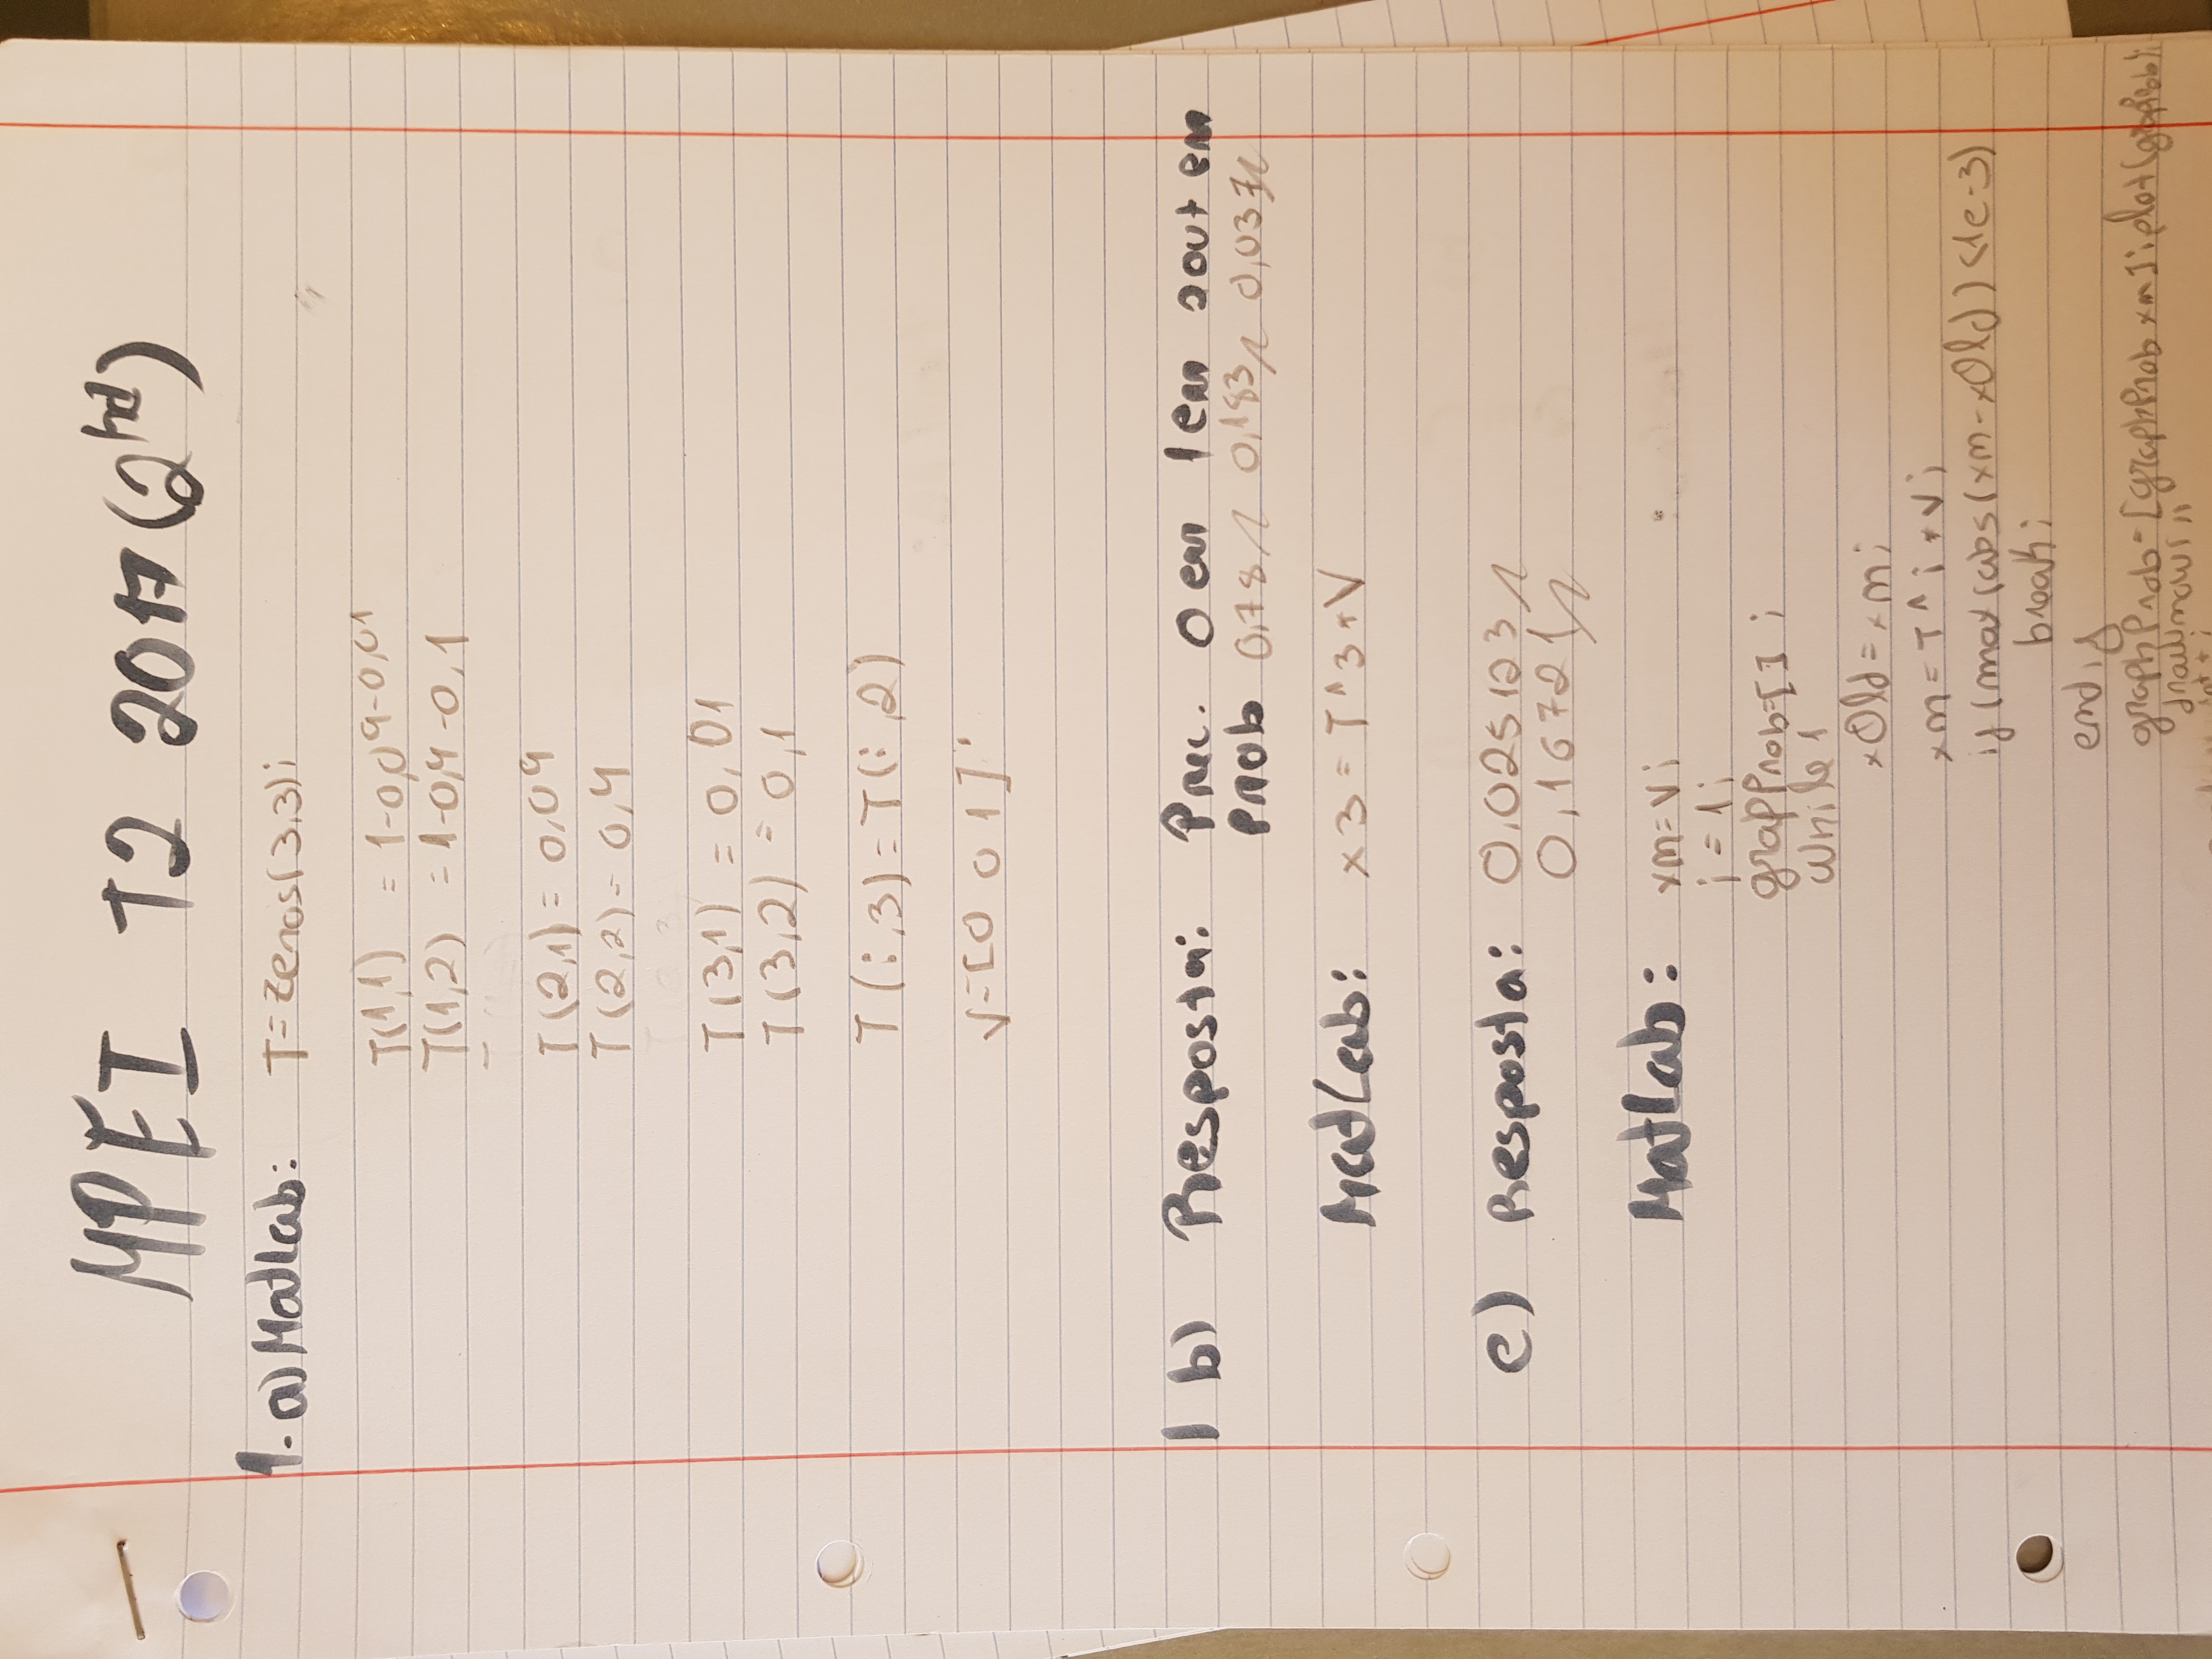 MPEI T2 2017 (2nd)
1. a) Matlab: T=zeros(3,3);
T(1,1) = 1-0,09-0,01
T(1,2) = 1-0,4-0,1
T(2,1) = 0,09
T(2,2) = 0,4
T(3,1) = 0,01
T(3,2) = 0,1
T(:,3)=T(:,2)
V=[0 0 1]'
1 b) Resposta: Prec. 0 em 1 em 2 out em
Prob 0,78 0,183 0,037
MatLab: x3 = T^3*V
c) Resposta: 0,025123
0,16721
Matlab: xm=V;
i=1;
grapProb=[];
while 1
xOld=xm;
xm=T^i*V;
if (max(abs(xm-xOld)) <1e-3)
break;
endif
graphProb=[graphProb xm]; plot(grapProb);
drawnow();